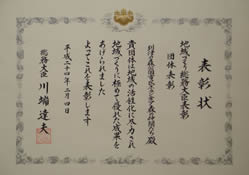 表彰状
地域づくり総務大臣表彰
団体表彰
殿
貴団体は地域の活性化に尽力され
地域づくりに極めて優れた成果を
あげられました
よってこれを表彰します
平成二十四年二月四日
総務大臣 川端達夫